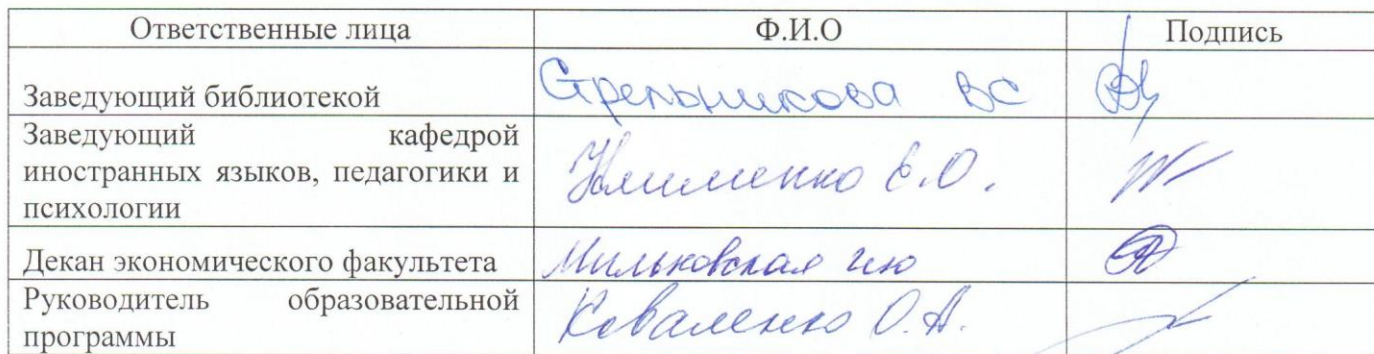 Ответственные лица Ф.И.О Подпись
Заведующий библиотекой Стрельникова ВС
Заведующий кафедрой
иностранных языков, педагогики и
психологии
Клименко Е.О.
Декан экономического факультета Мильковская
Руководитель образовательной
программы
Коваленко О.А.